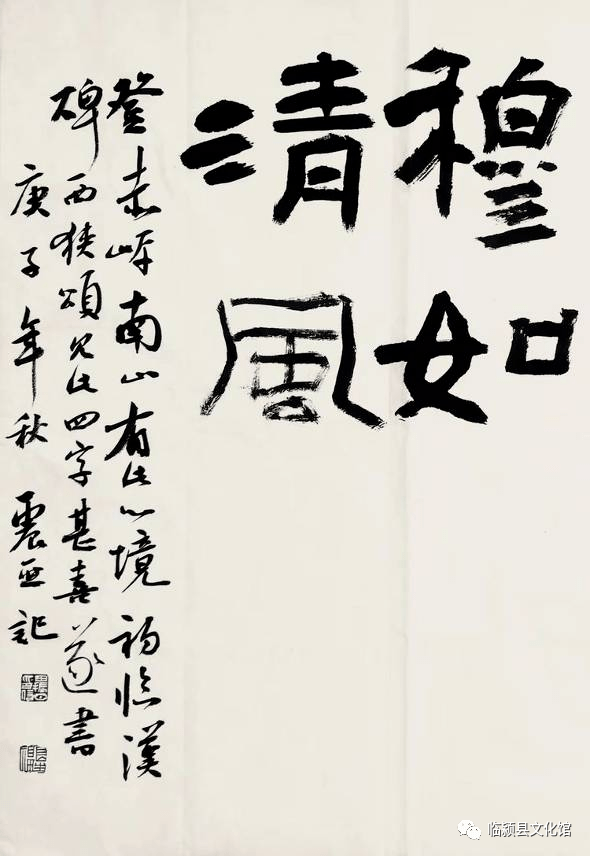 穆如
清風
登赤峰南山有此心境初臨漢
碑西狹頌見此四字甚喜遂書
庚子年秋 震亚記
临颍县文化馆